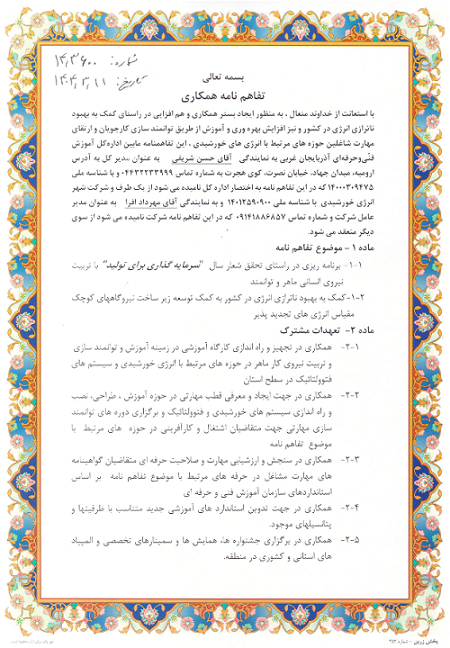 شماره: ۱۴,۳۶۰۰
تاریخ: ۱۴۰۴,۲,۱۱
بسمه تعالی
تفاهم نامه همکاری
با استعانت از خداوند متعال ، به منظور ایجاد بستر همکاری و هم افزایی در راستای کمک به بهبود
ناترازی انرژی در کشور و نیز افزایش بهره وری و آموزش از طریق توانمند سازی کارجویان و ارتقای
مهارت شاغلین حوزه های مرتبط با انرژی های خورشیدی ، این تفاهمنامه مابین اداره‌کل آموزش
فنّی‌وحرفه‌ای آذربایجان غربی به نمایندگی آقای حسن شریفی به عنوان مدیر کل به آدرس
ارومیه، میدان جهاد، خیابان نصرت، کوی هجرت به شماره تماس ۰۴۴۳۲۲۳۳۹۹۹ و با شناسه ملی
۱۴۰۰۰۳۰۹۴۷۵ که در این تفاهم نامه به اختصار اداره کل نامیده می شود از یک طرف و شرکت شهر
انرژی خورشیدی با شناسه ملی ۱۴۰۱۲۵۹۰۹۰۰ و به نمایندگی آقای مهرداد افرا به عنوان مدیر
عامل شرکت و شماره تماس ۰۹۱۴۱۸۸۶۸۵۷ که در این تفاهم نامه شرکت نامیده می شود از سوی
دیگر منعقد می شود.
ماده ۱ – موضوع تفاهم نامه
۱-۱- برنامه ریزی در راستای تحقق شعار سال "سرمایه گذاری برای تولید" با تربیت
نیروی انسانی ماهر و توانمند
۱-۲-کمک به بهبود ناترازی انرژی در کشور به کمک توسعه زیر ساخت نیروگاههای کوچک
مقیاس انرژی های تجدید پذیر
ماده ۲- تعهدات مشترک
۲-۱- همکاری در تجهیز و راه اندازی کارگاه آموزشی در زمینه آموزش و توانمند سازی
و تربیت نیروی کار ماهر در حوزه های مرتبط با انرژی خورشیدی و سیستم های
فتوولتاتیک در سطح استان
۲-۲- همکاری در جهت ایجاد و معرفی قطب مهارتی در حوزه آموزش ، طراحی، نصب
و راه اندازی سیستم های خورشیدی و فتوولتاتیک و برگزاری دوره های توانمند
سازی مهارتی جهت متقاضیان اشتغال و کارآفرینی در حوزه های مرتبط با
موضوع تفاهم نامه
۲-۳- همکاری در سنجش و ارزشیابی مهارت و صلاحیت حرفه ای متقاضیان گواهینامه
های مهارت مشاغل در حرفه های مرتبط با موضوع تفاهم نامه بر اساس
استانداردهای سازمان آموزش فنی و حرفه ای
۲-۴- همکاری در جهت تدوین استاندارد های آموزشی جدید متناسب با ظرفیتها و
پتانسیلهای موجود.
۲-۵- همکاری در برگزاری جشنواره ها، همایش ها و سمینارهای تخصصی و المپیاد
های استانی و کشوری در منطقه.
پخش زرین - شماره ۲۷۳